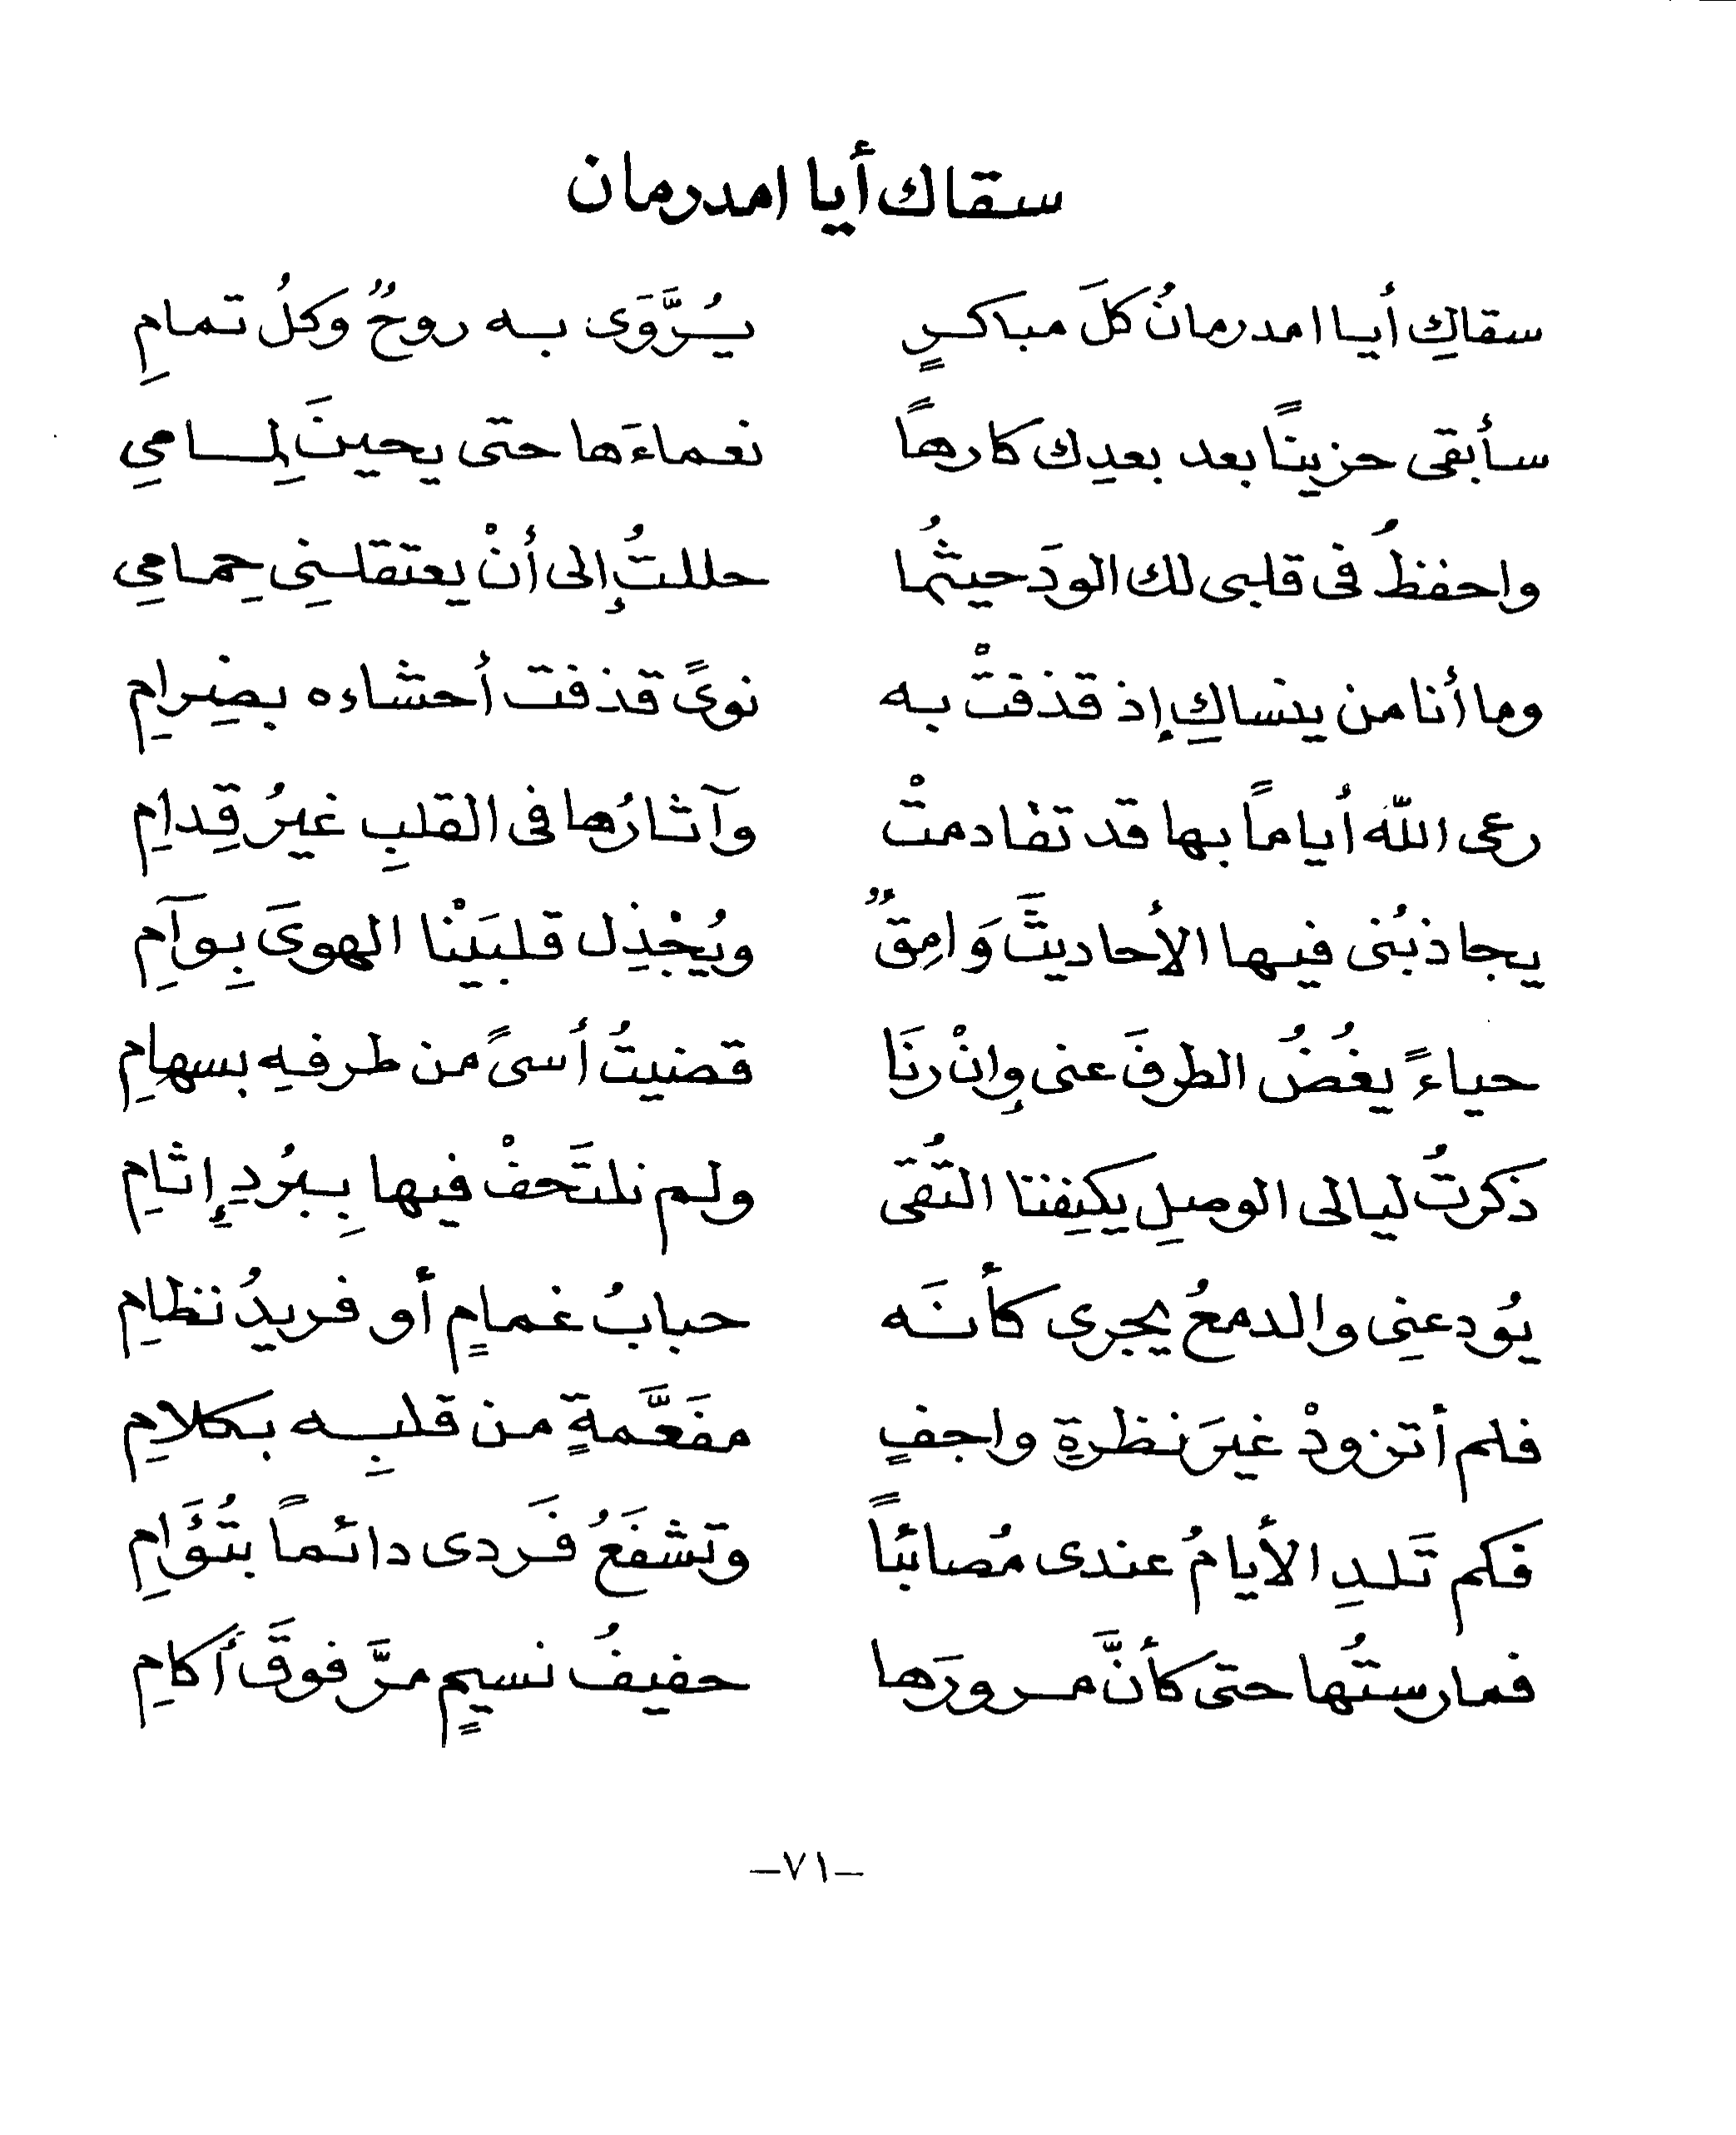 سقاك أيا امدرمان
سقاكِ أيا امدرمانُ كلَ مباكرٍ يُرَّوَى به روحٌ وكلُ تمامِ
سأبقى حزينًا بعد بعدِك كارهاً نعماءَها حتى يحينَ لِمامِي
واحفظُ فى قلبى لك الودَ حيثُما حللتُ إلى أنْ يعتقلنِى حِمامِي
وما أنا من ينساكِ إذ قذفتْ به نوىً قذفت أحشاءه بضِرامِ
رعى اللّه أياماً بها قد تفادمتْ وآثارُها فى القلبِ غيرُ قِدامِ
يجاذبُنى فيها الأحاديثَ وَامِقٌ ويُجْذِل قلبَيْنا الهوىَ بِوآمِ
حياءً يغُضُ الطرفَ عنى وإنْ رنَا قضيتُ أسىً من طرفهِ بسهامِ
ذكرتُ ليالى الوصلِ يكنِفنا التُقَى ولم نلتَحفْ فيها بِبُردِ إثامِ
يُودعنِى والدمعُ يجرى كأنَه حبابُ غمامٍ أو فريدُ نظامِ
فلم أتزودْ غيرَ نظرةِ واجفٍ مفَعَّمةٍ من قلبِه بكلامِ
فكم تَلدِ الأيامُ عندى مُصائبًا وتشفَعُ فَردى دائماً بتُؤَامِ
فمارستُها حتى كأنَّ مرورَها حفيفُ نسيمٍ مرَّ فوقَ أكامِ
–٧١–